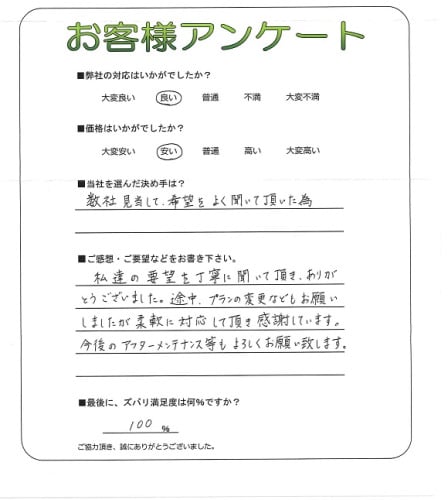 お客様アンケート
■弊社の対応はいかがでしたか?
大変良い 良い 普通 不満 大変不満
■価格はいかがでしたか?
大変安い 安い 普通 高い 大変高い
■当社を選んだ決め手は?
数社見当して、希望をよく聞いて頂いた為
■ご感想・ご要望などをお書き下さい。
私達の要望を丁寧に聞いて頂き、ありが
とうございました。途中、プランの変更などもお願い
しましたが柔軟に対応して頂き感謝しています。
今後のアフターメンテナンス等もよろしくお願い致します。
■最後に、ズバリ満足度は何%ですか?
100 %
ご協力頂き、誠にありがとうございました。